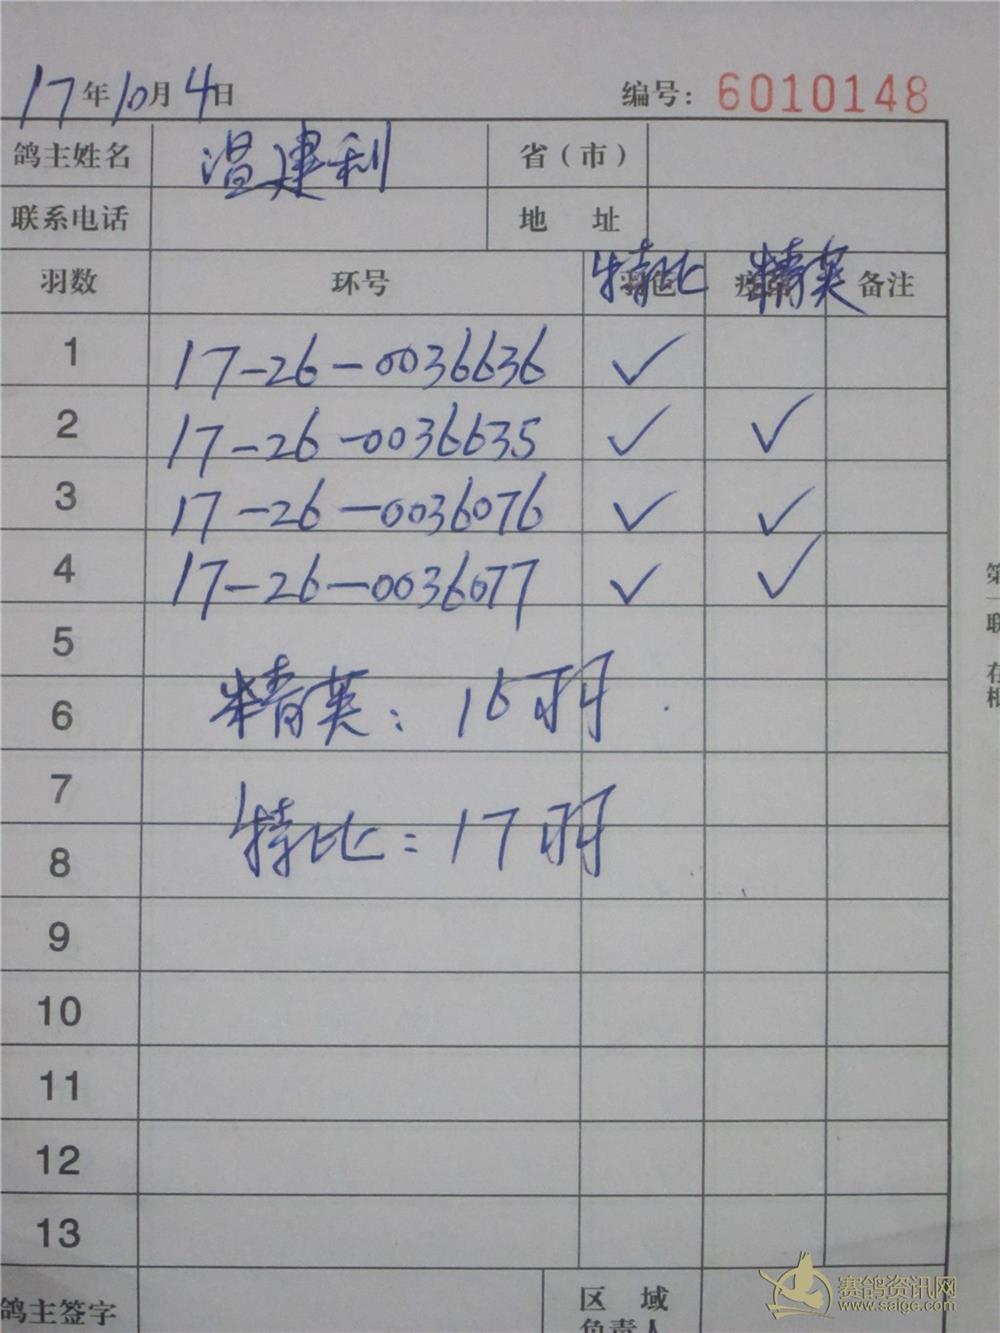 17年10月4日 编号：6010148
鸽主姓名 温建利 省（市）
联系电话 地 址
羽数 环号 特比 精英 备注
1 17-26-0036636 ✓
2 17-26-0036635 ✓ ✓
3 17-26-0036076 ✓ ✓
4 17-26-0036077 ✓ ✓
5
6 精英：16羽
7
8 特比：17羽
9
10
11
12
13
鸽主签字 区 域
负责人
第一联 存根
赛鸽资讯网
www.saigc.com